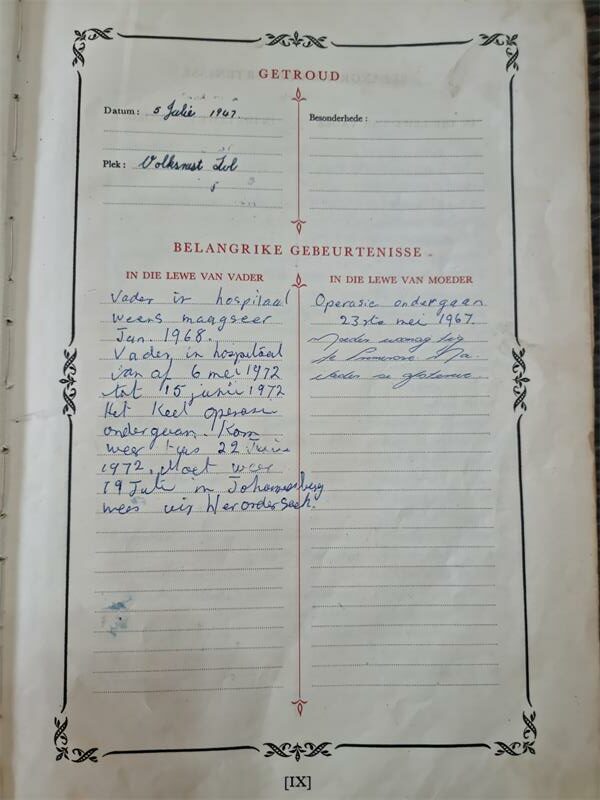 GETROUD
Datum: 5 Julie 1947.
Besonderhede:
Plek: Volksrust Tvl
BELANGRIKE GEBEURTENISSE
IN DIE LEWE VAN VADER
Vader in hospitaal
weens maagseer
Jan. 1968.
Vader in hospitaal
van af 6 mei 1972
tot 15 junie 1972
Het Keel operasie
ondergaan. Kom
weer tuis 22 Junie
1972. Moet weer
19 Julie in Johannesburg
wees vir Her ondersoek.
IN DIE LEWE VAN MOEDER
Operasie ondergaan
23ste mei 1967.
Moeder woonag by
te Primrose Na
Vader se
[IX]